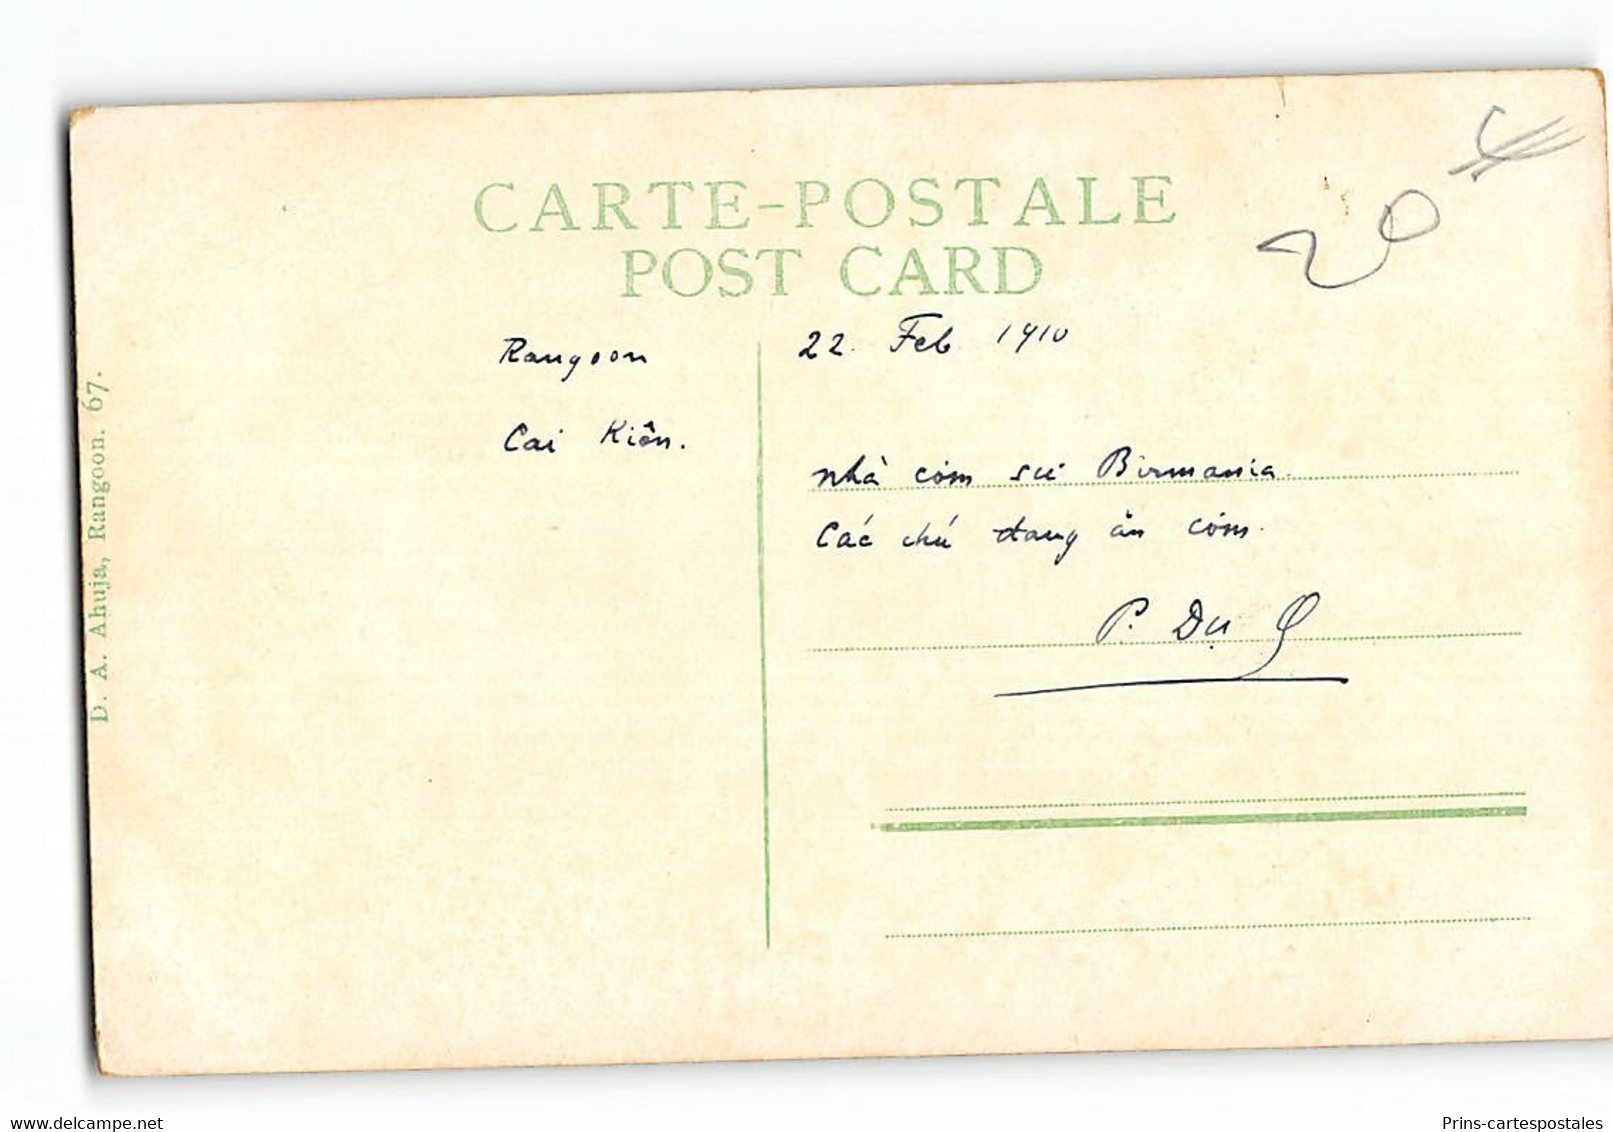 CARTE-POSTALE
POST CARD
20
Rangoon 22. Feb 1910
Cai Kiên.
nhà cơm sứ Birmania.
Các chú đang ăn cơm.
P. Dụ
D. A. Ahuja, Rangoon. 67.
delcampe.net
Prins-cartespostales